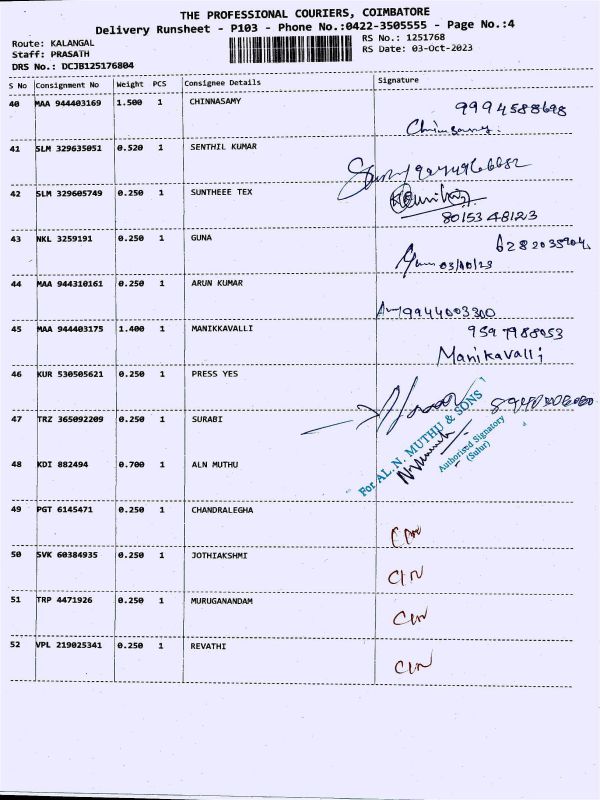 THE PROFESSIONAL COURIERS, COIMBATORE
Delivery Runsheet - P103 - Phone No.:0422-3505555 - Page No.:4
Route: KALANGAL
Staff: PRASATH
DRS No.: DCJB125176804
RS No.: 1251768
RS Date: 03-Oct-2023
S No Consignment No Weight PCS Consignee Details Signature
40 MAA 944403169 1.500 1 CHINNASAMY
9994588698
41 SLM 329635051 0.520 1 SENTHIL KUMAR
42 SLM 329605749 0.250 1 SUNTHEEE TEX
80153 48123
43 NKL 3259191 0.250 1 GUNA
03/10/23
44 MAA 944310161 0.250 1 ARUN KUMAR
9944003300
45 MAA 944403175 1.400 1 MANIKKAVALLI
9597988053
Manikavalli
46 KUR 530505621 0.250 1 PRESS YES
47 TRZ 365092209 0.250 1 SURABI
48 KDI 882494 0.700 1 ALN MUTHU
For AL. N. MUTHU & SONS
Authorised Signatory
(Sulur)
49 PGT 6145471 0.250 1 CHANDRALEGHA
50 SVK 60384935 0.250 1 JOTHIAKSHMI
51 TRP 4471926 0.250 1 MURUGANANDAM
52 VPL 219025341 0.250 1 REVATHI